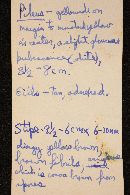 Pileus - yellowish on
margin to mustard yellow
in center, a slight glaucous
pubescence (disk),
3½ - 8 cm.
Gills - tan, adnexed.
Stipe - 3½ - 6 cm x 6-10 mm
dingy yellow brown,
brown fibrils
which is cocoa brown from
spores